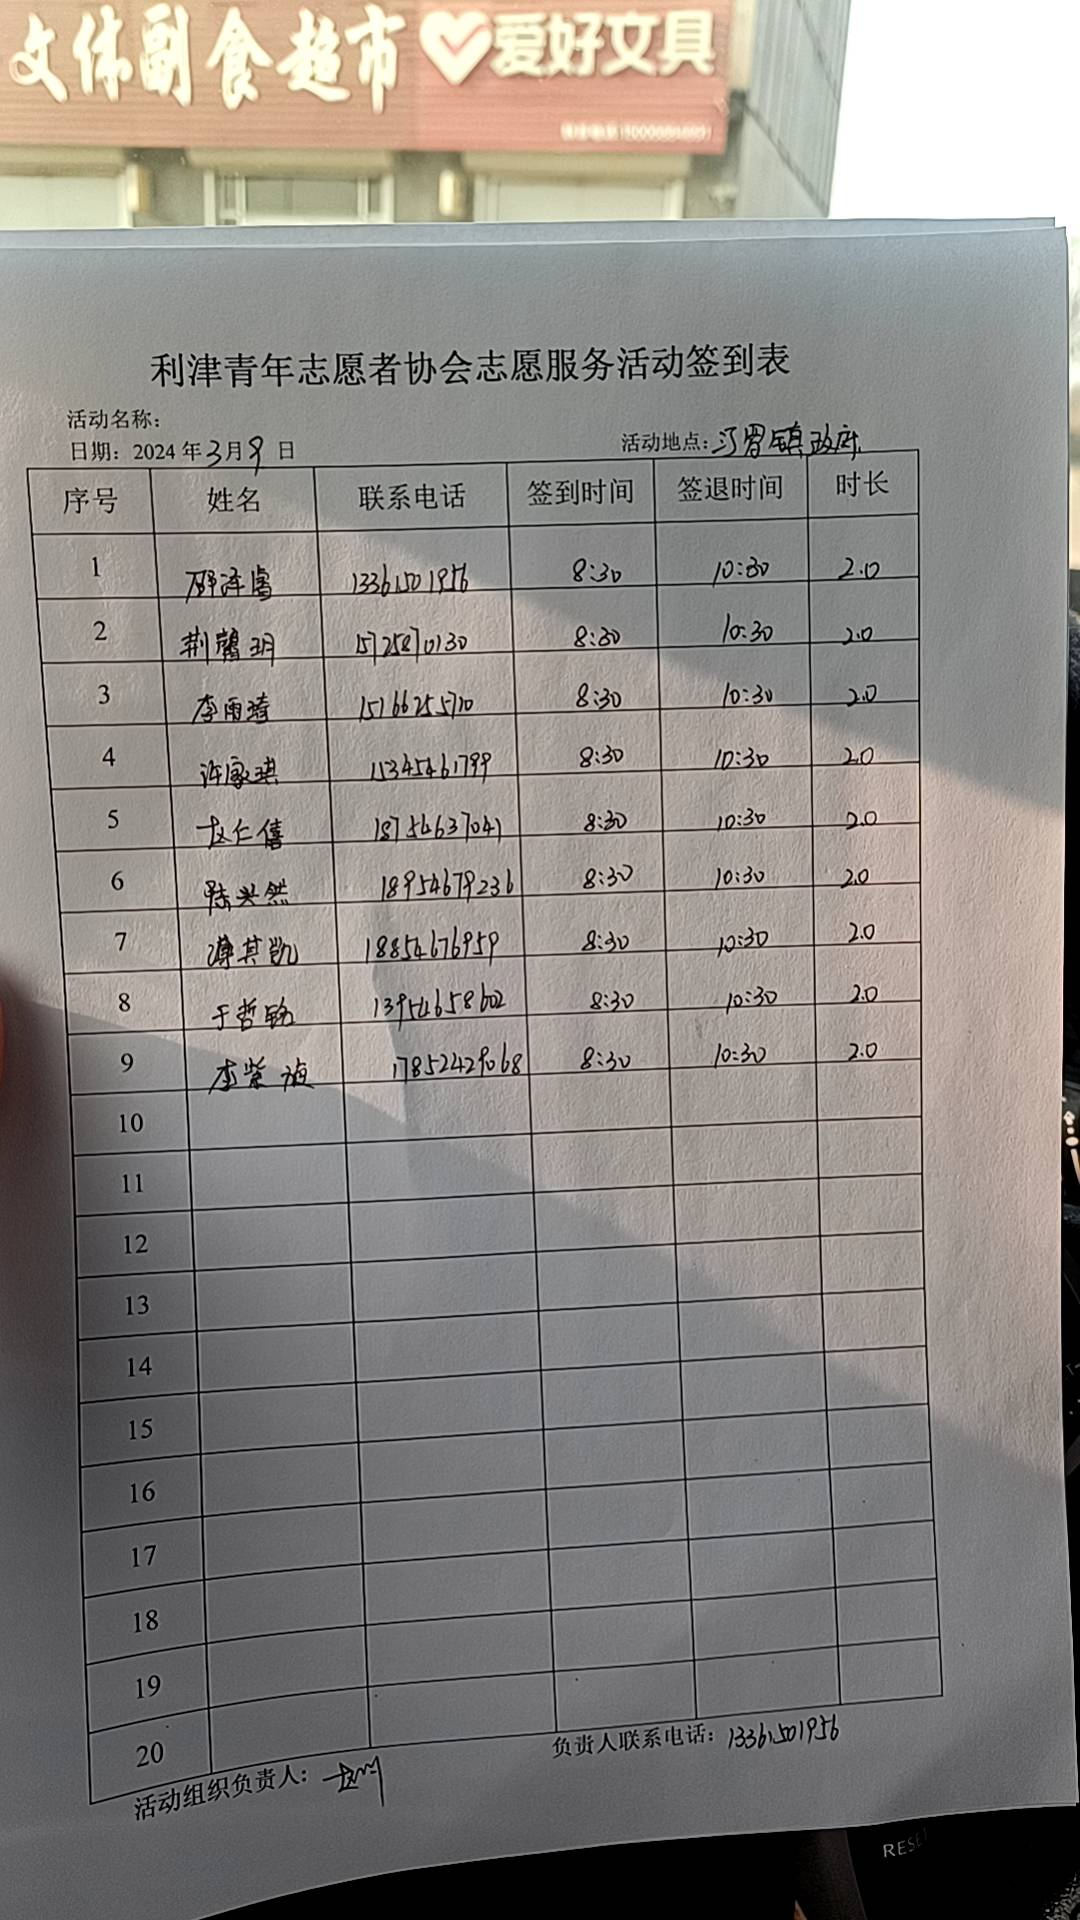 文体副食超市 爱好文具
利津青年志愿者协会志愿服务活动签到表
活动名称:
日期: 2024 年 3月 9 日 活动地点: 汀罗镇政府
序号 姓名 联系电话 签到时间 签退时间 时长
1 13361501956 8:30 10:30 2.0
2 荆馨玥 15725870130 8:30 10:30 2.0
3 李雨琦 15166255710 8:30 10:30 2.0
4 许家琪 15345461799 8:30 10:30 2.0
5 赵仁僖 18754637041 8:30 10:30 2.0
6 陈兴然 18954679236 8:30 10:30 2.0
7 薄其凯 18854676959 8:30 10:30 2.0
8 于哲铭 13954658602 8:30 10:30 2.0
9 李紫祯 17852429068 8:30 10:30 2.0
10
11
12
13
14
15
16
17
18
19
20
活动组织负责人: 负责人联系电话: 13361501956
RESET